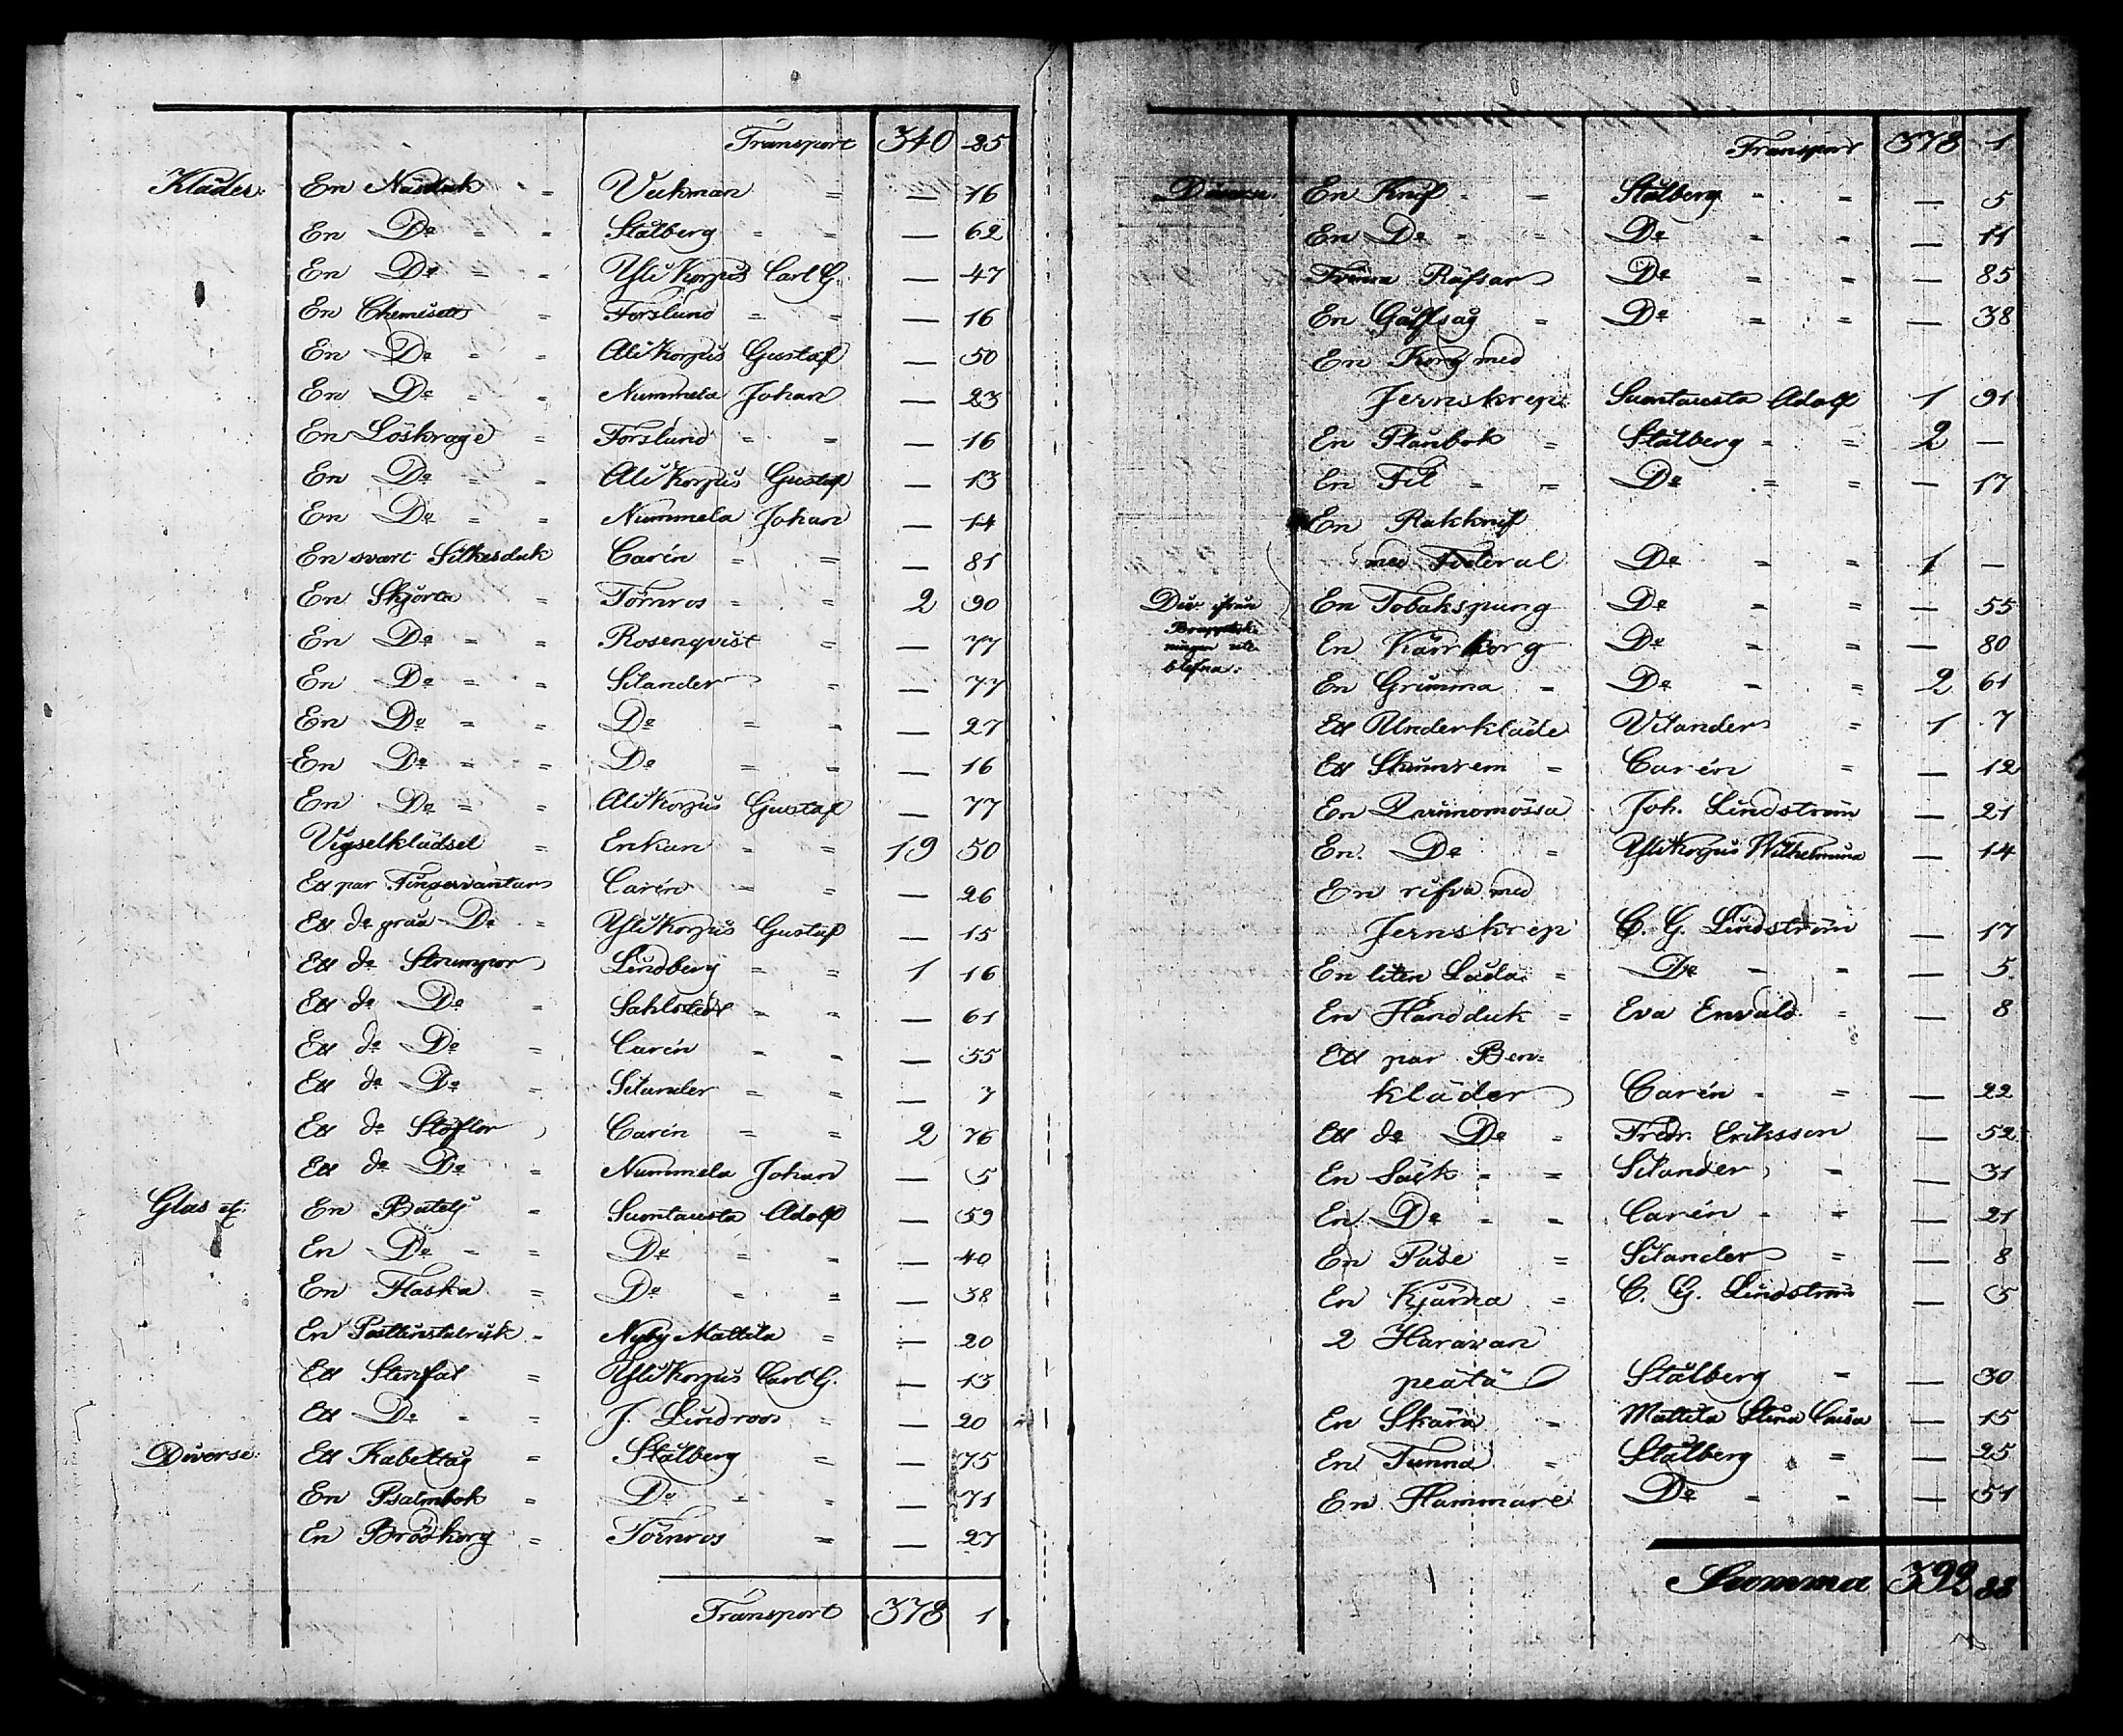 Transport 340 25
Kläder: En Näsduk = Veckman = — 16
En Do = = Stålberg = = — 62
En Do = = Yli Korpus Carl G. — 47
En Chemisett = Forslund = = — 16
En Do = = Ali Korpus Gustaf — 50
En Do = = Nummela Johan — 23
En Löskrage = Forslund = = — 16
En Do = = Ali Korpus Gustaf — 13
En Do = = Nummela Johan — 14
En svart Silkesduk Carén = = — 81
En Skjorta = Törnros = = 2 90
En Do = = Rosenqvist = — 77
En Do = = Silander = — 77
En Do = = Do = = — 27
En Do = = Do = = — 16
En Do = = Ali Korpus Gustaf — 77
Vigselklädsel = Enkan = = 19 50
Ett par Fingervantar Carén = = — 26
Ett do gråa Do = Yli Korpus Gustaf — 15
Ett do Strumpor Lindberg = = 1 16
Ett do Do = Sahlstedt = = — 61
Ett do Do = Carén = = — 55
Ett do Do = Silander = = — 7
Ett do Stöflor Carén = = 2 76
Ett do Do = Nummela Johan — 5
Glas etc: En Butelj = Suontausta Adolf — 59
En Do = = Do = = — 40
En Flaska = Do = = — 38
En Postlinstalrick = Nyby Mattila = — 20
Ett Stenfat = Yli Korpus Carl G. — 13
Ett Do = = J. Lindroos = — 20
Diverse: Ett Kabeltåg = Stålberg = — 75
En Psalmbok = Do = = — 71
En Brödkorg = Törnros = — 27
Transport 378 1
Transport 378 1
En Knif = = Stålberg = = — 5
En Do = = Do = = — 11
Räfsor Do = = — 85
En Do = = — 38
En Korg med
Jernskrep Suontausta Adolf 1 91
En Plånbok = Stålberg = = 2 —
En Fil = = Do = = — 17
En Rakknif
med Foderal Do = = 1 —
Div. ifrån En Tobakspung Do = = — 55
En Kärrkorg Do = = — 80
ningen ute
blefna: En Grimma = Do = = 2 61
Ett Underkläde Vilander = 1 7
Ett Skinnrem = Carén = — 12
En Joh. Lindström — 21
En Do = Yli Korpus Wilhelmina — 14
En rifva med
Jernskrep C. G. Lindström — 17
En liten Låda = Do = = — 5
En Handduk = Eva Envald = — 8
Ett par Ben=
kläder Carén = = — 22
Ett do Do = Fredr. Eriksson — 52
En Säck = = Silander = — 31
En Do = = Carén = = — 21
En Påse = Silander = — 8
En Kjärna = C. G. Lindström — 5
2 Haravan
päätä Stålberg = — 30
En Skära = Mattila Stina Caisa — 15
En Tunna = Stålberg = — 25
En Hammare Do = = — 51
Summa 392 88